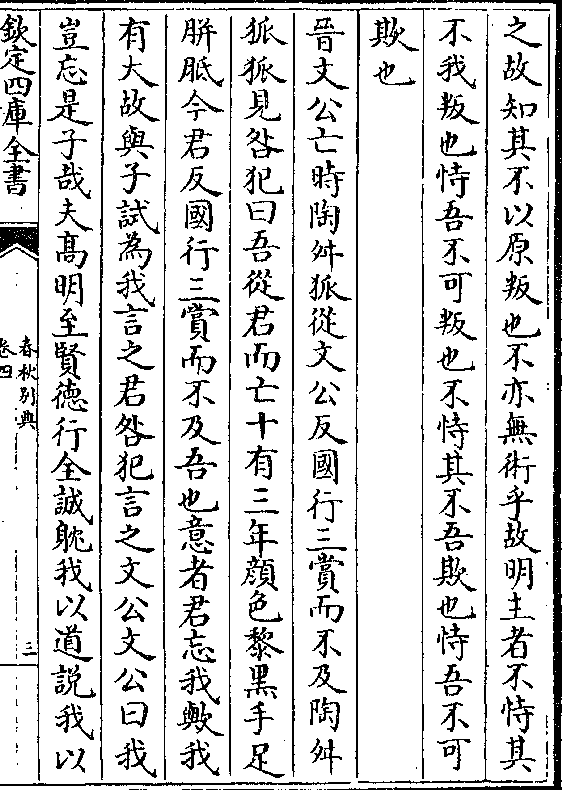 之故知其不以原叛也不亦無術乎故明主者不恃其
不我叛也恃吾不可叛也不恃其不吾欺也恃吾不可
欺也
晉文公亡時陶舛狐從文公反國行三賞而不及陶舛
狐狐見咎犯曰吾從君而亡十有三年顔色黎黑手足
胼胝今君反國行三賞而不及吾也意者君忘我歟我
有大故與子試為我言之君咎犯言之文公文公曰我
豈忘是子哉夫髙明至賢徳行全誠躭我以道説我以
欽定四庫全書
春秋别典
卷四
三